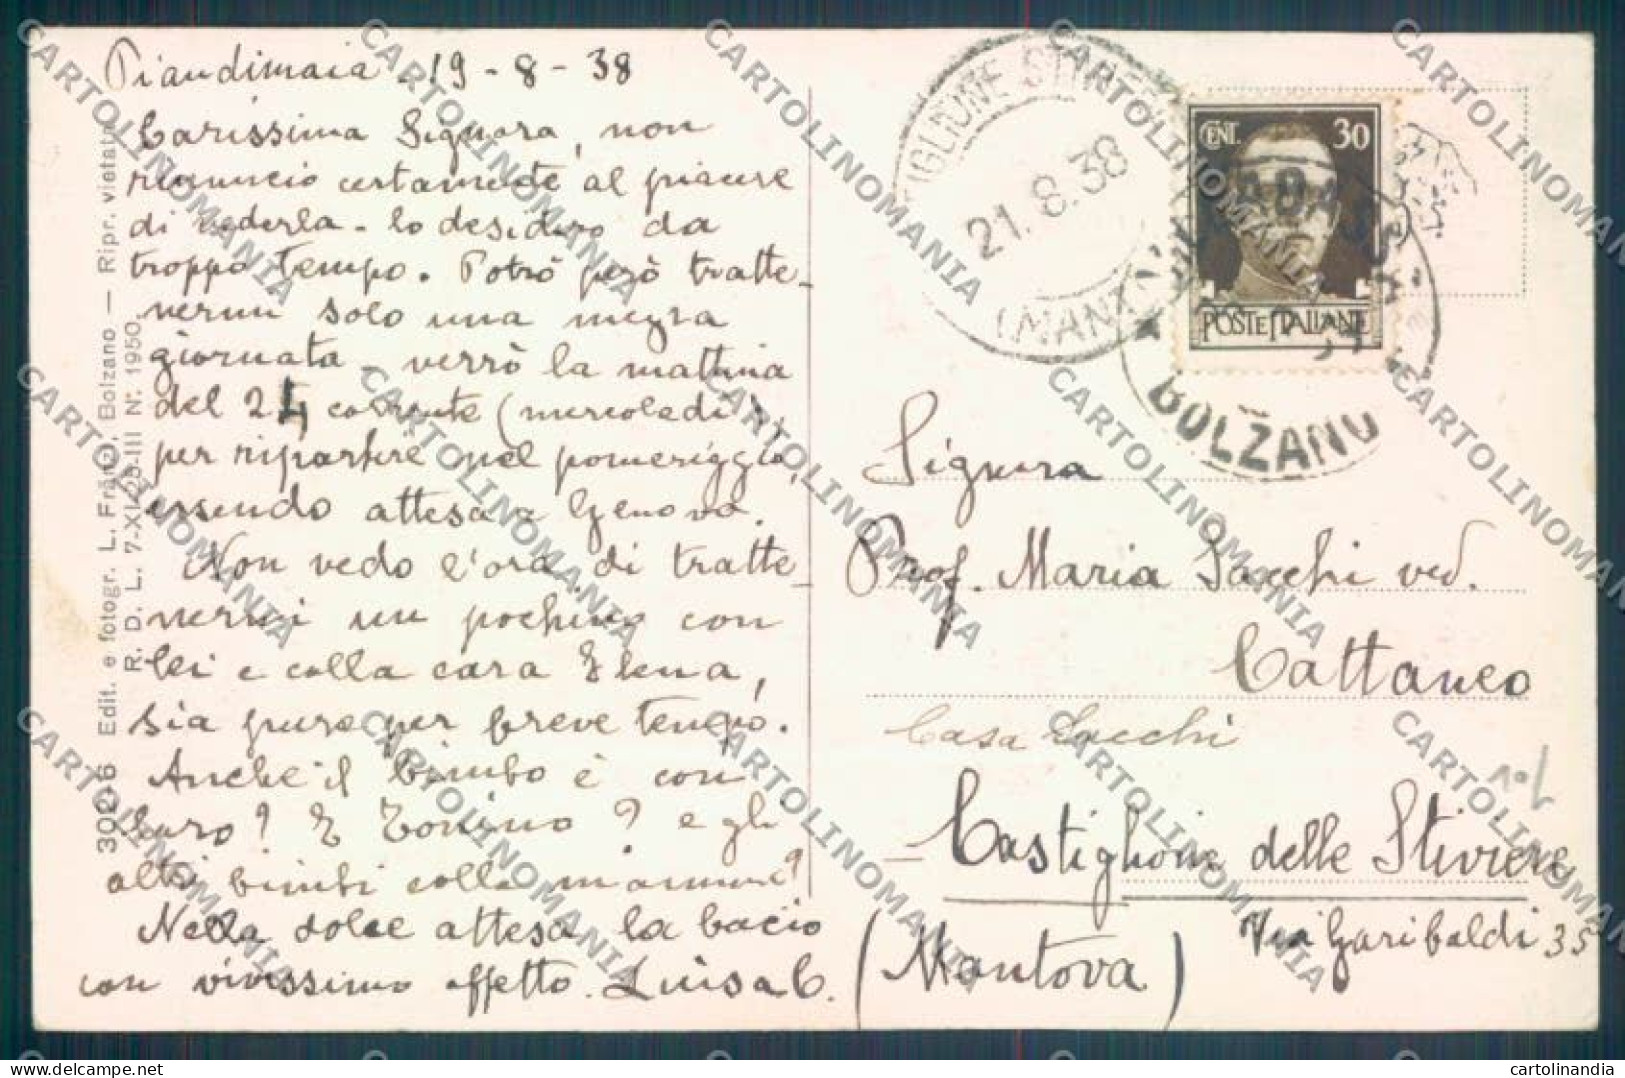 Piandimaia 19-8-38
Carissima Signora, non
rinuncio certamente al piacere
di vederla - lo desidero da
troppo tempo. Potrò però tratte-
nermi solo una mezza
giornata - verrò la mattina
del 24 corrente (mercoledì)
per ripartire nel pomeriggio
essendo attesa a Genova.
Non vedo l'ora di tratte-
nermi un pochino con
lei e colla cara Elena,
sia pure per breve tempo.
Anche il bimbo è con
loro? E Tonino? e gli
altri bimbi colla mamma?
Nella dolce attesa la bacio
con vivissimo affetto. Luisa C.
30216 Edit. e fotogr. L. Fränzl, Bolzano — Ripr. vietata
R. D. L. 7-XI-25-III N. 1950
21.8.38
(MANTOVA)
BOLZANO
CENT. 30
POSTE ITALIANE
Signora
Prof. Maria Sacchi ved.
Cattaneo
Casa Sacchi
Castiglione delle Stiviere
Via Garibaldi 35
(Mantova)
CARTOLINOMANIA
cartolinandia